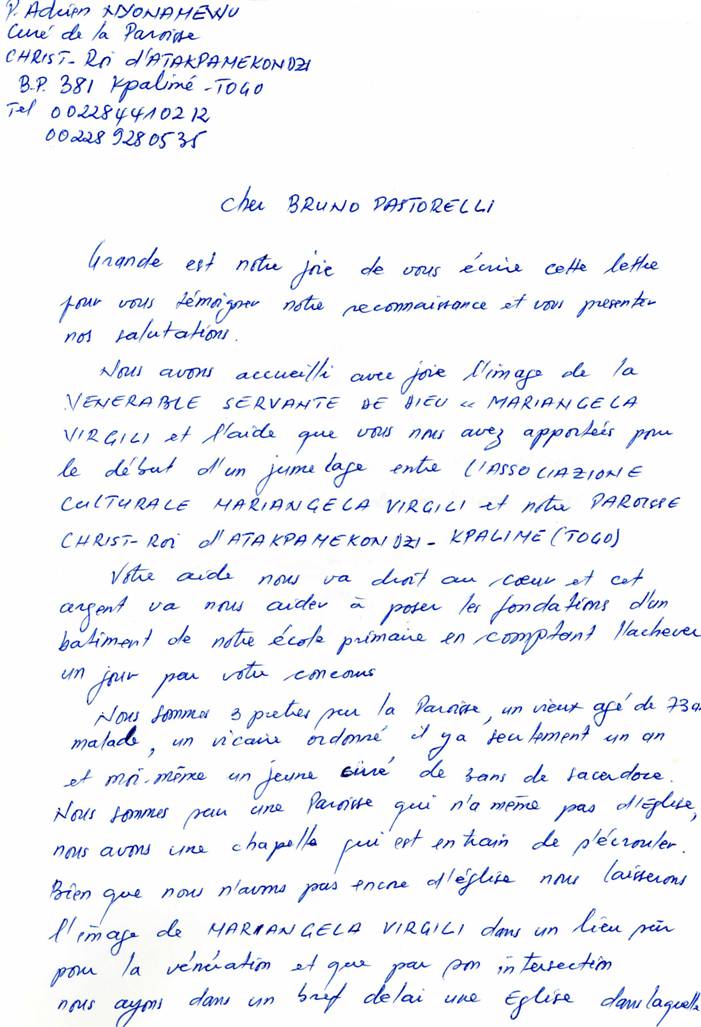 P. Adrien NYONAMEWU
Curé de la Paroisse
CHRIST-Roi d'ATAKPAMEKONDZI
B.P. 381 Kpalimé - TOGO
Tel 002284410212
002289280535
Cher BRUNO PASTORELLI
Grande est notre joie de vous écrire cette lettre
pour vous témoigner notre reconnaissance et vous presenter
nos salutations.
Nous avons accueilli avec joie l'image de la
VENERABLE SERVANTE DE DIEU « MARIANGELA
VIRGILI et l'aide que vous nous avez apportées pour
le début d'un jumelage entre L'ASSOCIAZIONE
CULTURALE MARIANGELA VIRGILI et notre PAROISSE
CHRIST-Roi d'ATAKPAMEKONDZI - KPALIME (TOGO)
Votre aide nous va droit au cœur et cet
argent va nous aider à poser les fondations d'un
batiment de notre école primaire en comptant l'achever
un jour par votre concours
Nous sommes 3 pretres sur la Paroisse, un vieux agé de 73a
malade, un vicaire ordonné il ya seulement un an
et moi-même un jeune curé de 3ans de sacerdoce.
Nous sommes sur une Paroisse qui n'a même pas d'Eglise,
nous avons une chapelle qui est entrain de s'écrouler.
Bien que nous n'avons pas encore d'église nous laisserons
l'image de MARIANGELA VIRGILI dans un lieu sûr
pour la vénération et que par son intersection
nous ayons dans un bref delai une Eglise dans laquelle